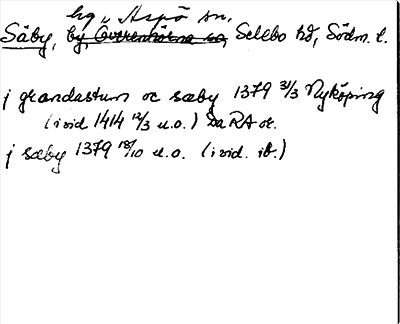 hg, Aspö sn,
Säby, by, Överenhörna sn, Selebo hd, Södm. l.
j grandastum oc sæby 1379 31/3 Nyköping
(i vid 1414 12/3 u.o.) Da RA or.
j sæby 1379 18/10 u.o. (i vid. ib.)